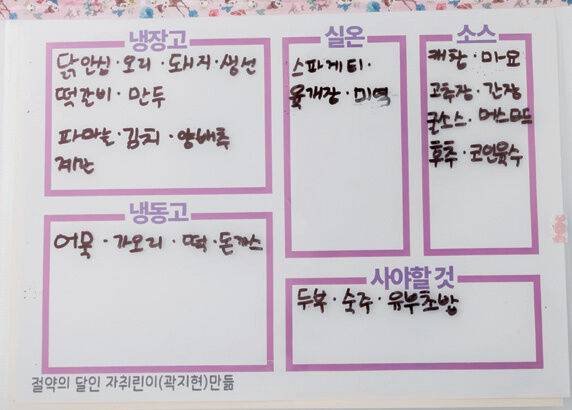 냉장고
닭안심·오리·돼지·생선
떡갈비·만두
파마늘·김치·양배추
계란
실온
스파게티·
육개장·미역
소스
케찹·마요
고추장·간장
굴소스·머스타드
후추·코인육수
냉동고
어묵·가오리·떡·돈까스
사야할 것
두부·숙주·유부초밥
절약의 달인 자취린이(곽지현)만듦